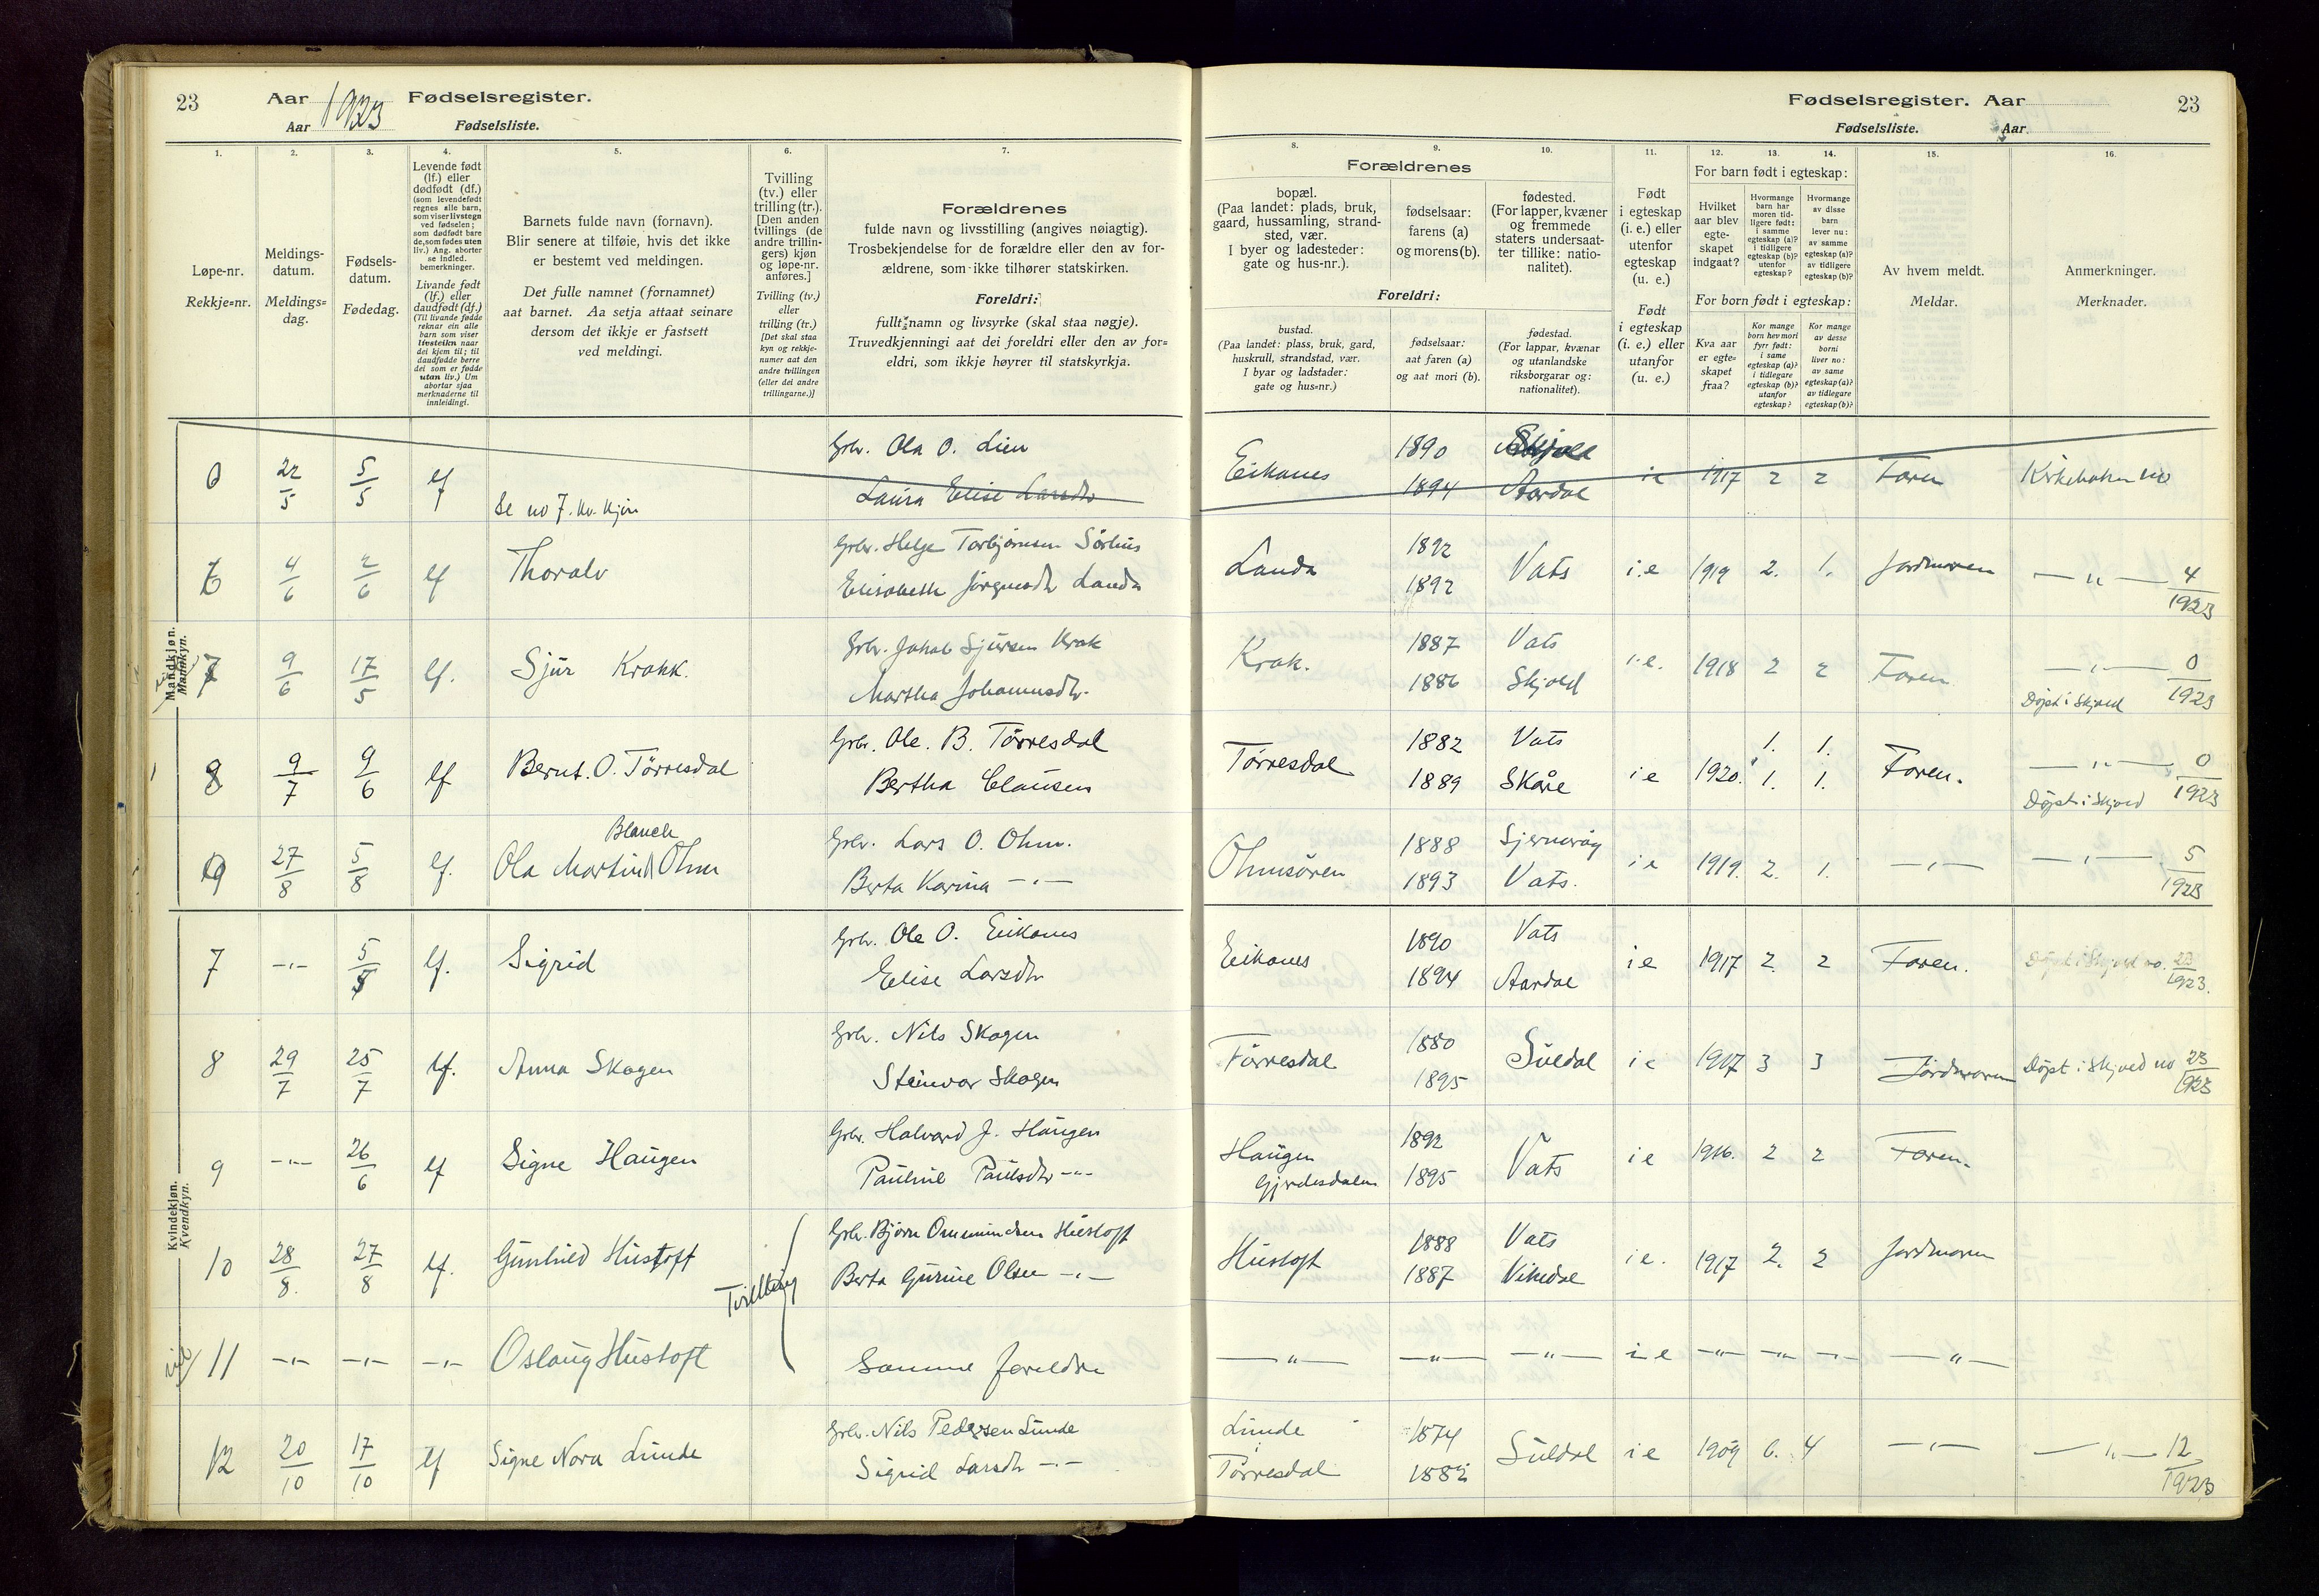 23 Aar 1923 Fødselsregister.
Aar Fødselsliste.
1. 2. 3. 4. 5. 6. 7.
Løpe-nr.
Rekkje-nr.
Meldings-
datum.
Meldings-
dag.
Fødsels-
datum.
Fødedag.
Levende født
(lf.) eller
dødfødt (df.)
(som levendefødt
regnes alle barn,
som viser livstegn
ved fødselen;
som dødfødt bare
de, som fødes uten
liv.) Ang. aborter
se indled.
bemerkninger.
Livande født
(lf.) eller
daudfødt (df.)
(Til livande fødde
reknar ein alle
barn som viser
livsteikn naar
dei kjem til; til
daudfødde berre
dei som er fødde
utan liv.) Um
abortar sjaa
merknaderne til
innleidingi.
Barnets fulde navn (fornavn).
Blir senere at tilføie, hvis det ikke
er bestemt ved meldingen.
Det fulle namnet (fornamnet)
aat barnet. Aa setja attaat seinare
dersom det ikkje er fastsett
ved meldingi.
Tvilling
(tv.) eller
trilling (tr.).
[Den anden
tvillings (de
andre trillin-
gers) kjøn
og løpe-nr.
anføres.]
Tvilling (tv.)
eller
trilling (tr.)
[Det skal staa
kyn og rekkje-
numer aat den
andre tvillingen
(eller dei andre
trillingarne.)]
Forældrenes
fulde navn og livsstilling (angives nøiagtig).
Trosbekjendelse for de forældre eller den av for-
ældrene, som ikke tilhører statskirken.
Foreldri:
fullt namn og livsyrke (skal staa nøgje).
Truvedkjenningi aat dei foreldri eller den av for-
eldri, som ikkje høyrer til statskyrkja.
Fødselsregister. Aar 23
Fødselsliste. Aar
8. 9. 10. 11. 12. 13. 14. 15. 16.
Forældrenes
bopæl.
(Paa landet: plads, bruk,
gaard, hussamling, strand-
sted, vær.
I byer og ladesteder:
gate og hus-nr.).
fødselsaar:
farens (a)
og morens (b).
fødested.
(For lapper, kvæner
og fremmede
staters undersaat-
ter tillike: natio-
nalitet).
Foreldri:
bustad.
(Paa landet: plass, bruk, gard,
huskrull, strandstad, vær.
I byar og ladstader:
gate og hus-nr.)
fødselsaar:
aat faren (a)
og aat mori (b).
fødestad.
(For lappar, kvænar
og utanlandske
riksborgarar og:
nationalitet).
Født
i egteskap
(i. e.) eller
utenfor
egteskap
(u. e.)
Født
i egteskap
(i. e.) eller
utanfor
(u. e.)
For barn født i egteskap:
Hvilket
aar blev
egte-
skapet
indgaat?
Hvormange
barn har
moren tid-
ligere født:
i samme
egteskap (a)?
i tidligere
egteskap (b)?
utenfor
egteskap?
Hvormange
av disse
barn
lever nu:
av samme
egteskap (a)?
av tidligere
egteskap (b)?
For born født i egteskap:
Kva aar
er egte-
skapet
fraa?
Kor mange
born hev mori
fyrr født:
i same
egteskap (a)?
i tidlegare
egteskap (b)?
utanfor
egteskap?
Kor mange
av desse
borni
liver no:
av same
egteskap (a)?
av tidlegare
egteskap (b)?
Av hvem meldt.
Meldar.
Anmerkninger.
Merknader.
Mandkjøn.
Mannkyn.
22/5 5/5 lf Se no 7. Kv. kjøn Grbr. Ola O. Lien
Laura Elise Larsdtr Eikanes 1890 1894 Aardal i e 1917 2 2 Faren
6 4/6 2/6 lf Thoralv Grbr. Helge Torbjørnsen Sørhus
Elisabeth Jørgensdtr Landa Landa 1892 1892 Vats i.e 1919 2. 1. Jordmoren —„— 4/1923
7 9/6 17/5 lf. Sjur Krakk. Grbr. Jakob Sjursen Krak
Martha Johannesdtr. Krak. 1887 Vats 1886 Skjold i.e. 1918 2 2 Faren —„— 0/1923
Døpt i Skjold
8 9/7 9/6 lf Bernt. O. Tørresdal Grbr. Ole. B. Tørresdal
Bertha Clausen Tørresdal 1882 Vats 1889 Skåre i e 1920. 1. 1. 1. 1. Faren. —„— 0/1923
Døpt i Skjold
9 27/8 5/8 lf. Ola Martin Blanck Ohm Grbr. Lars O. Ohm.
Berta Karina —„— Ohmsøren 1888 Sjernerøy 1893 Vats. i e 1919. 2. 1. —„— —„— 5/1923
Kvindekjøn.
Kvendkyn.
7 —„— 5/5 lf. Sigrid Grbr. Ole O. Eikanes
Elise Larsdtr Eikanes 1890 Vats 1894 Aardal i e 1917 2 2 Faren. Døpt i Skjold no. 23/1923.
8 29/7 25/7 lf. Anna Skogen Grbr. Nils Skogen
Steinvor Skogen Tørresdal 1880 1895 Suldal i e 1917 3 3 Jordmoren Døpt i Skjold no 23/1923
9 —„— 26/6 lf Signe Haugen Grbr. Halvard J. Haugen
Pauline Paulsdtr —„— Haugen
Gjerdesdalen 1892 1895 Vats i e 1916. 2 2 Faren.
10 28/8. 27/8 lf. Gunhild Hustoft Tvilling Grbr. Bjørn Ommundsen Hustoft
Berta Gurine Olsen —„— Hustoft 1888 Vats 1887 Vikedal i e. 1917 2. 2 Jordmoren
11 —„— —„— —„— Oslaug Hustoft Samme foreldre —„— —„— —„— i e —„— —„— —„— —„—
12 20/10 17/10 lf Signe Nora Lunde Grbr. Nils Pedersen Lunde
Sigrid Larsdtr —„— Lunde i
Tørresdal 1874 1882 Suldal i e 1909 6. 4 —„— —„— 12/1923